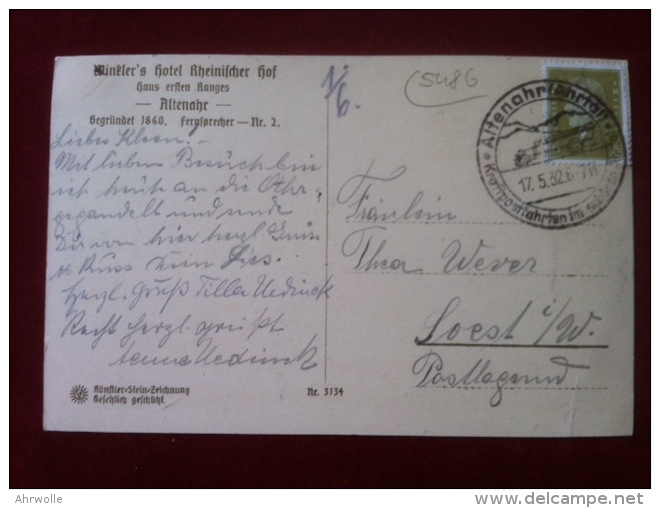 Winkler's Hotel Rheinischer Hof
Haus ersten Ranges
— Altenahr —
Gegründet 1860. Fernsprecher — Nr. 2.
1/6.
(5486
Altenahr (Ahrtal)
17.5.32.6-7
Kraftpostfahrten im
Mit lieben Besuch bin
ich heute an die Ahr
gegondelt und
Dir von hier herzl.
Kuss Dein
herzl. Gruß Tilla
Recht herzl. grüßt
Fräulein
Thea Wever
Soest i/W.
Postlagernd
Künstler-Stein-Zeichnung
Gesetzlich geschützt.
Nr. 3134
Ahrwolle
delcampe.net